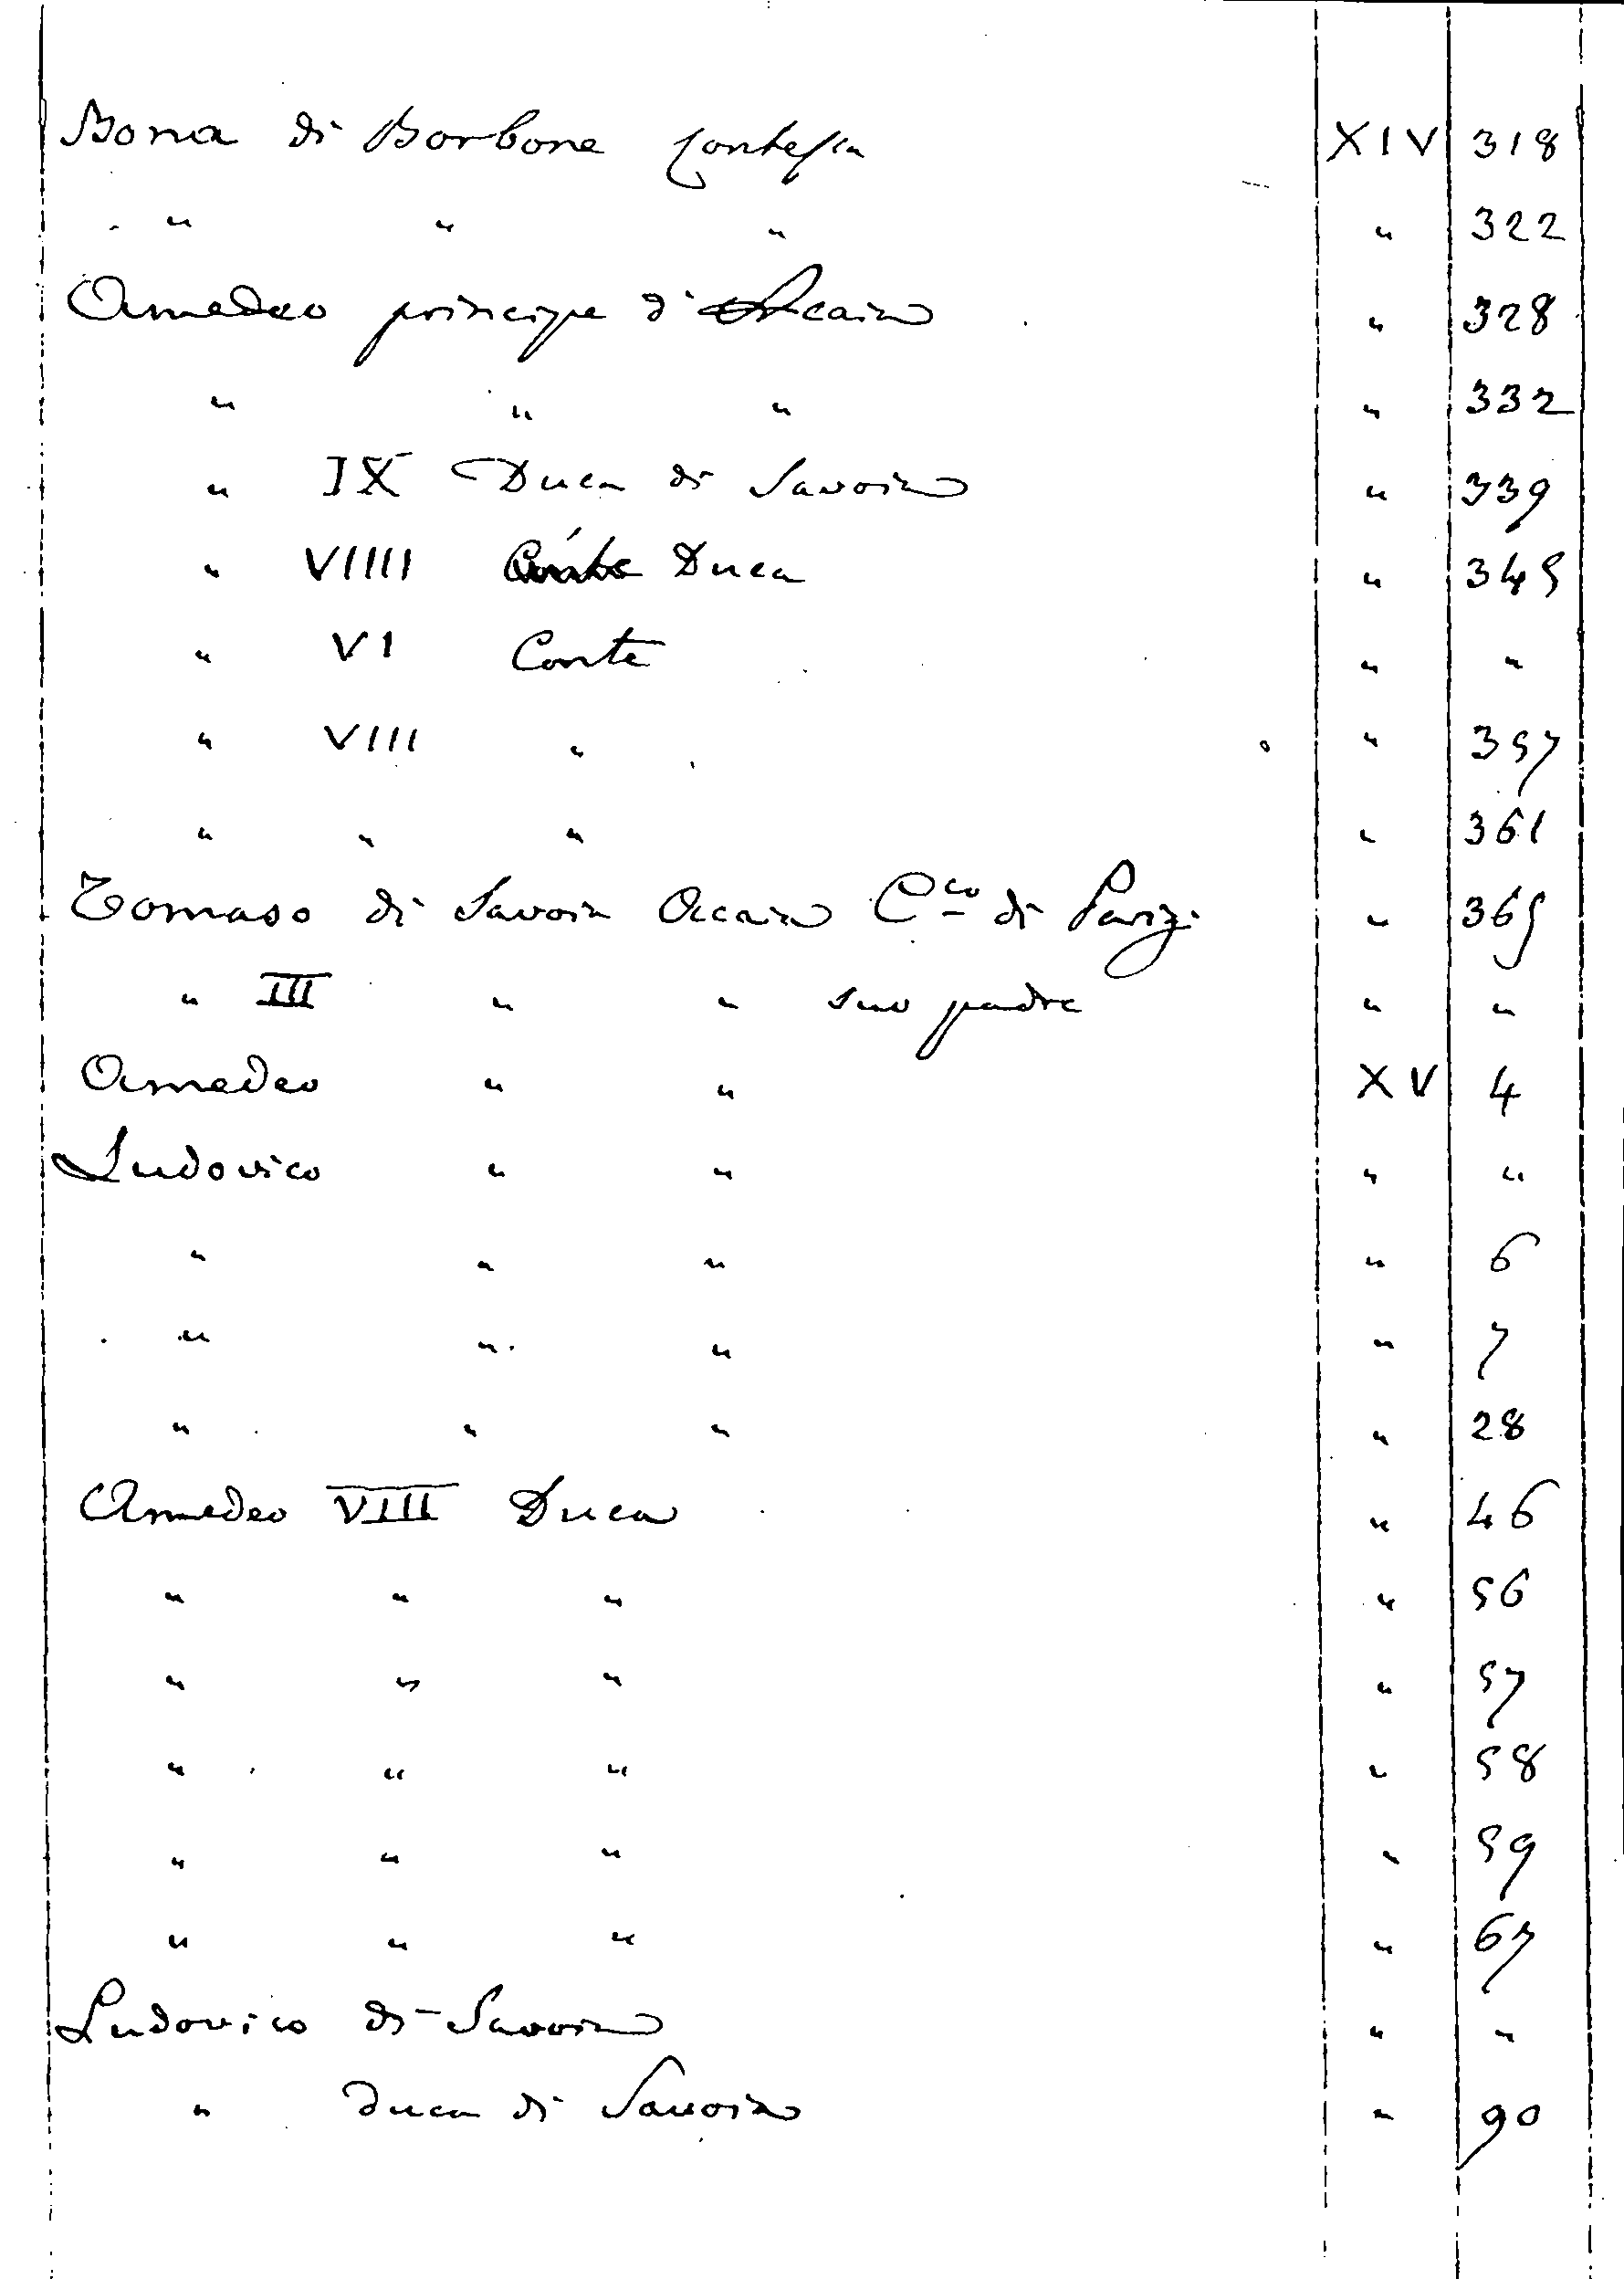 Bona di Borbone Contessa XIV 318
" " " " 322
Amedeo principe d'Acaia " 328
" " " " 332
" IX Duca di Savoia " 339
" VIIII Duca " 345
" VI Conte " "
" VIII " " 357
" " " " 361
Tomaso di Savoia Acaia Cco di Parigi " 365
" III " " suo padre " "
Amedeo " " XV 4
Ludovico " " " "
" " " " 6
" " " " 7
" " " " 28
Amedeo VIII Duca " 46
" " " " 56
" " " " 57
" " " " 58
" " " " 59
" " " " 67
Ludovico di Savoia " "
" Duca di Savoia " 90